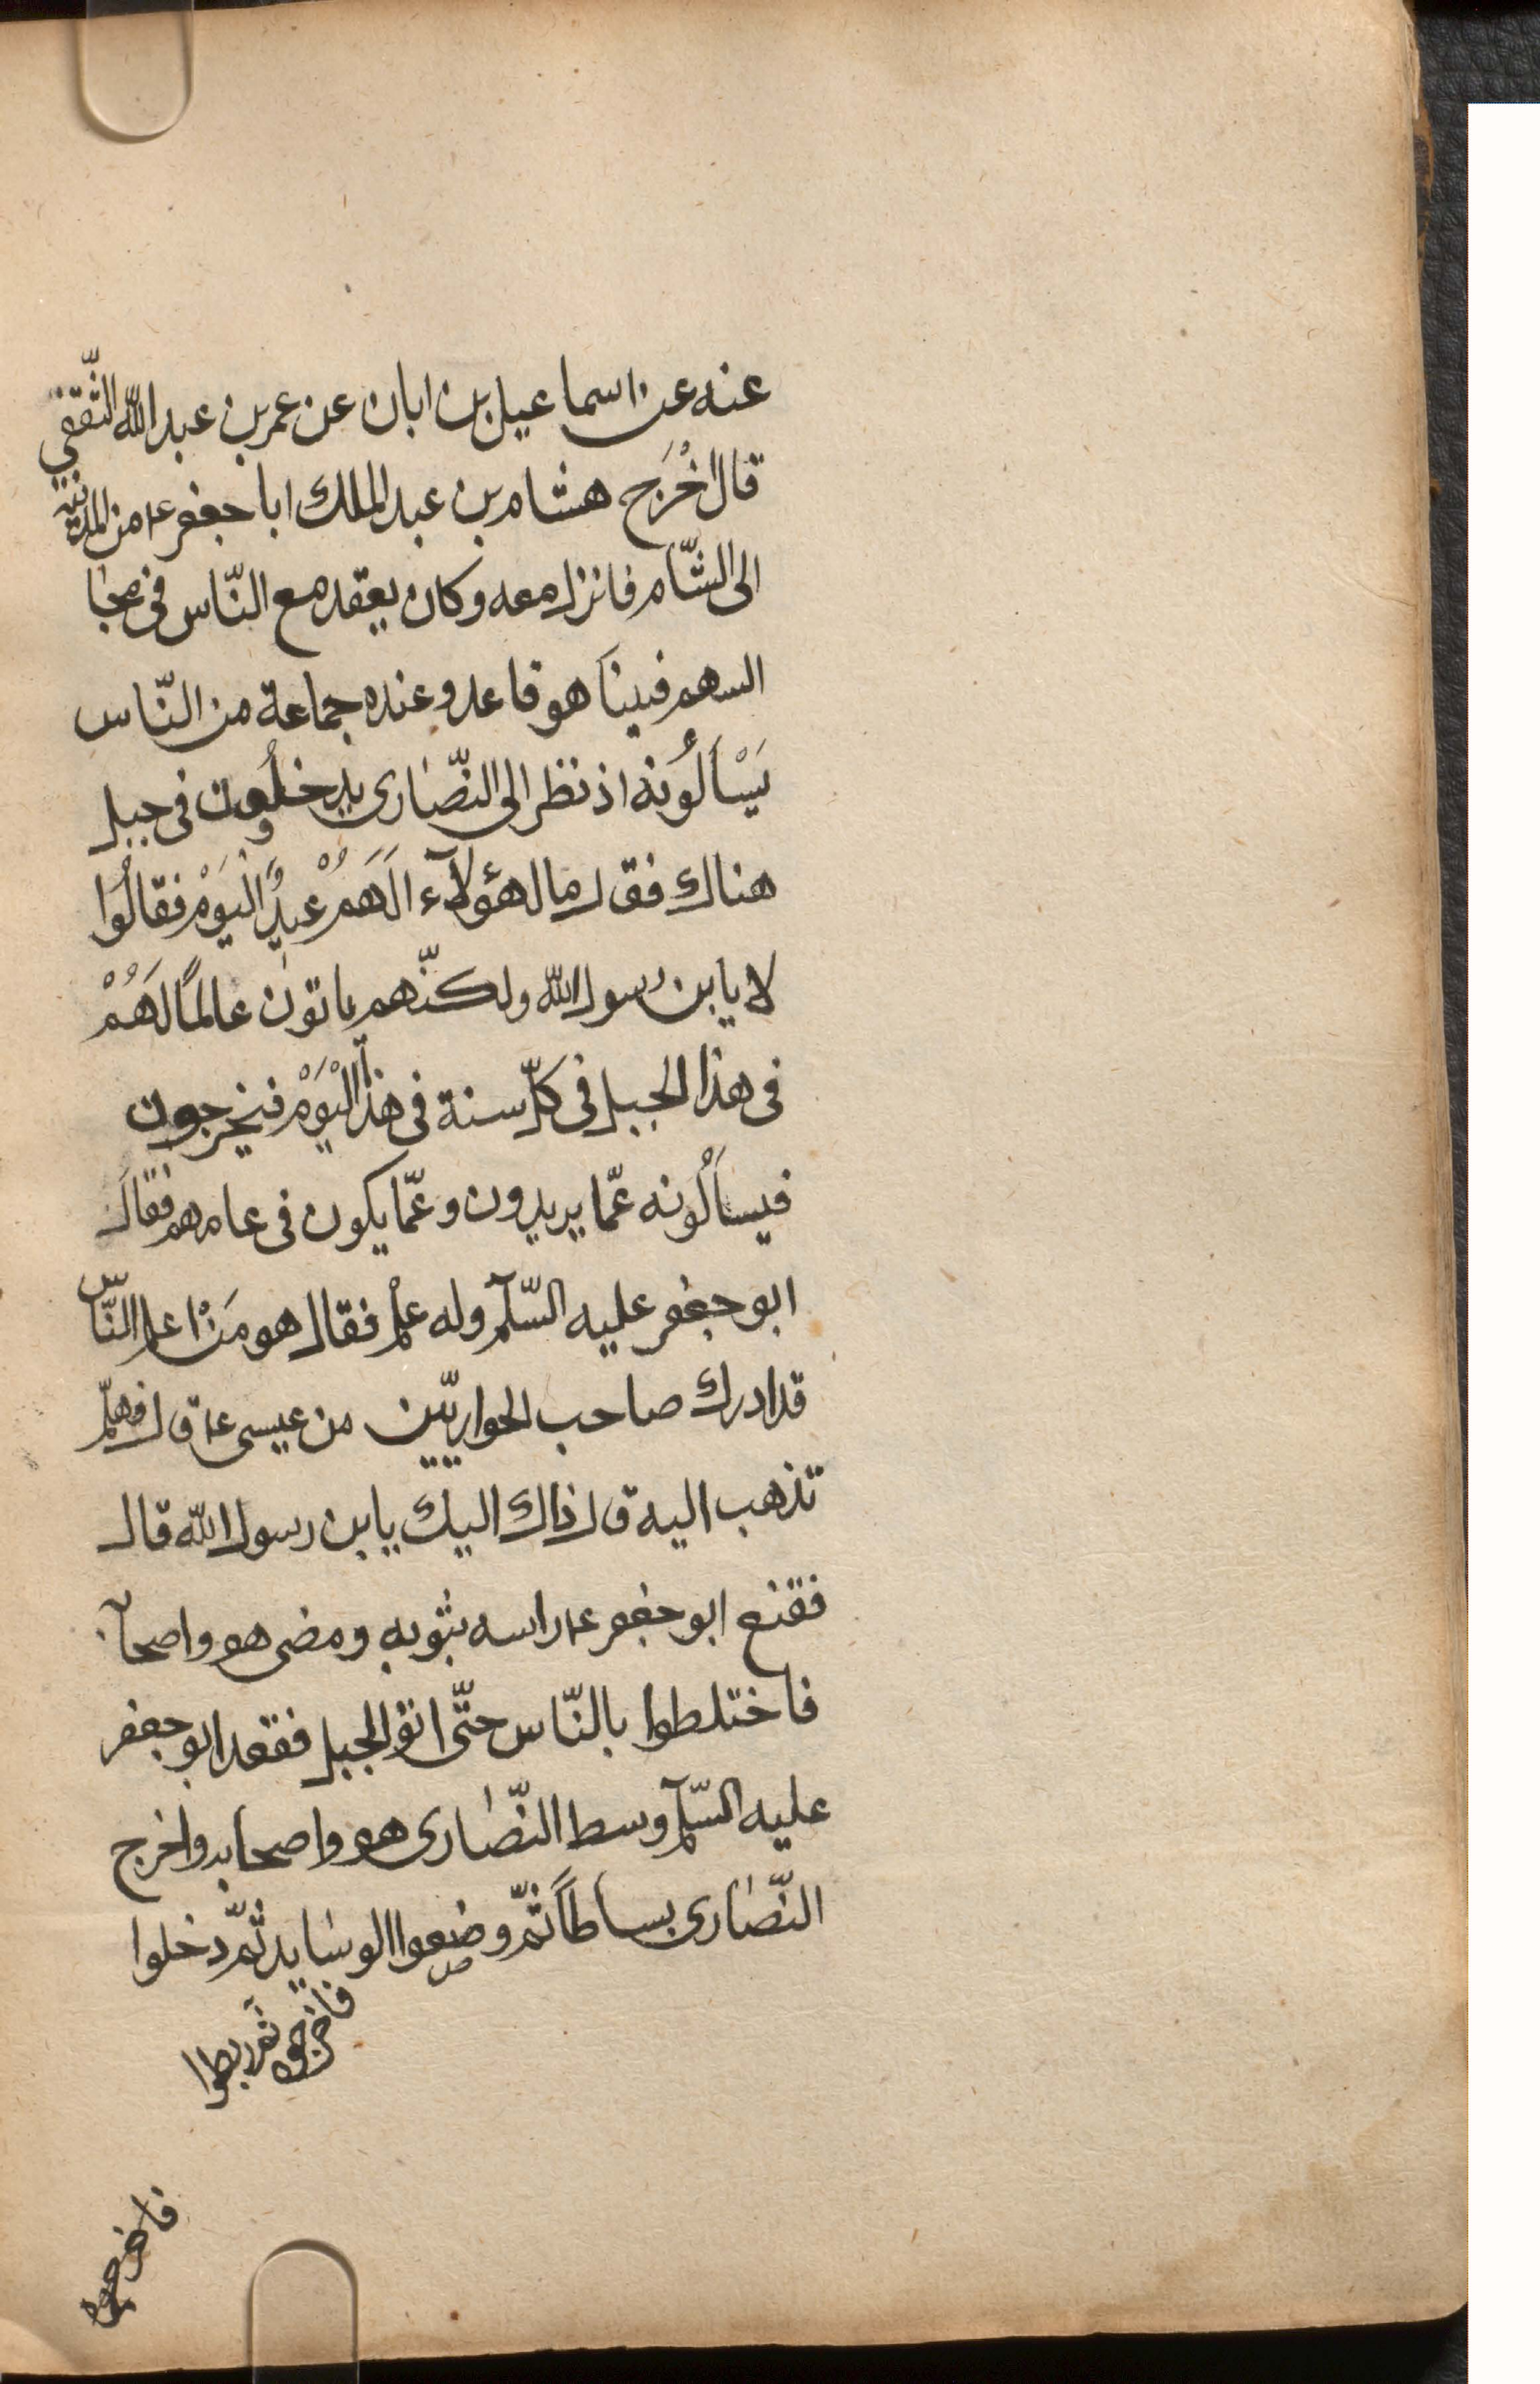 عنه عن اسماعيل بن ابان عن عمر بن عبد الله الثّقفي
قال اخْرَج هشام بن عبد الملك ابا جعفر ع من المدينة
الى الشّام فانزله معه وكان يقعد مع النّاس فى مجا
السهم فبينا هو قاعد وعنده جماعة من النّاس
يَسْأَلُونه اذ نظر الى النّصارى يدخلُون فى جبل
هناك فقال ما لهؤلآء الَهَمُ عيدٌ الْيَوْم فقالُوا
لا يا بن رسول الله ولكنّهم ياتون عالمًا لَهُمْ
فى هذا الجبل فى كلّ سنة فى هذا الْيَوْم فيخرجون
فيسأَلُونه عّما يريدون وعّما يكون فى عامهم فقال
ابو جعفر عليه السّلآم وله علْم فقال هو مَنْ اعلم النّاس
قد ادرك صاحب الحواريّين من عيسى ع قال فهلّم
نذهب اليه قال ذاك اليك يا بن رسول الله قال
فقنع ابو جعفر ع راسه بثوبه ومضى هو واصحآبه
فاختلطوا بالنّاس حتّى اتوا الجبل فقعد ابو جعفر
عليه السّلآم وسط النّصارى هو واصحابه واخرج
النّصارى بساطاً ثمّ وضعوا الوسايد ثمّ دخلوا
فاخرجوه ثم ربطوا
فاخرجوه